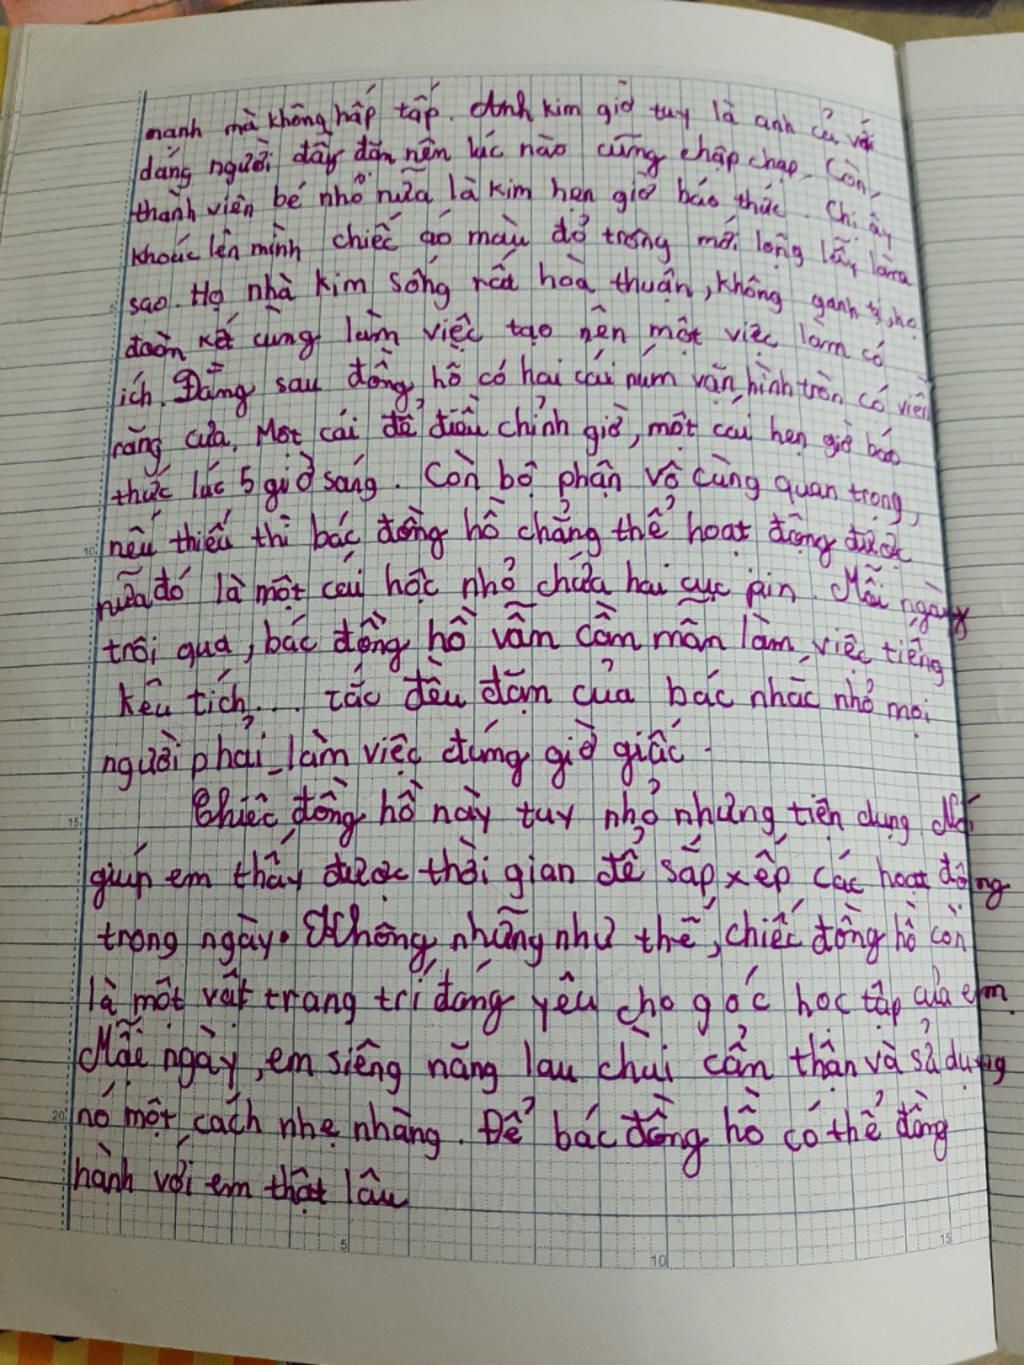 manh mà không hấp tấp. Anh kim giờ tuy là anh cả với
dáng người đầy đặn nên lúc nào cũng chập chạp. Còn,
thành viên bé nhỏ nữa là kim hẹn giờ báo thức. Chị ấy
khoác lên mình chiếc áo màu đỏ trông mới lộng lẫy làm
sao. Họ nhà kim sống rất hoà thuận, không ganh tị, họ
đoàn kết cùng làm việc tạo nên một việc làm có
ích. Đằng sau đồng hồ có hai cái núm vặn hình tròn có viền
răng cưa. Một cái để điều chỉnh giờ, một cái hẹn giờ báo
thức lúc 5 giờ sáng. Còn bộ phận vô cùng quan trọng,
nếu thiếu thì bác đồng hồ chẳng thể hoạt động được
nữa đó là một cái hộc nhỏ chứa hai cục pin. Mỗi ngày
trôi qua, bác đồng hồ vẫn cần mẫn làm việc tiếng
kêu tích... tắc đều đặn của bác nhắc nhở mọi
người phải làm việc đúng giờ giấc.
Chiếc đồng hồ này tuy nhỏ nhưng tiện dụng. Nó
giúp em thấy được thời gian để sắp xếp các hoạt động
trong ngày. Không những như thế, chiếc đồng hồ còn
là một vật trang trí đáng yêu cho góc học tập của em.
Mỗi ngày, em siêng năng lau chùi cẩn thận và sử dụng
nó một cách nhẹ nhàng. Để bác đồng hồ có thể đồng
hành với em thật lâu
5
10
15
10
15
20